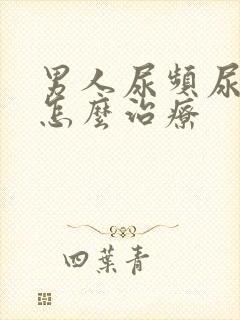 男人尿頻尿
怎麼治療
四葉青